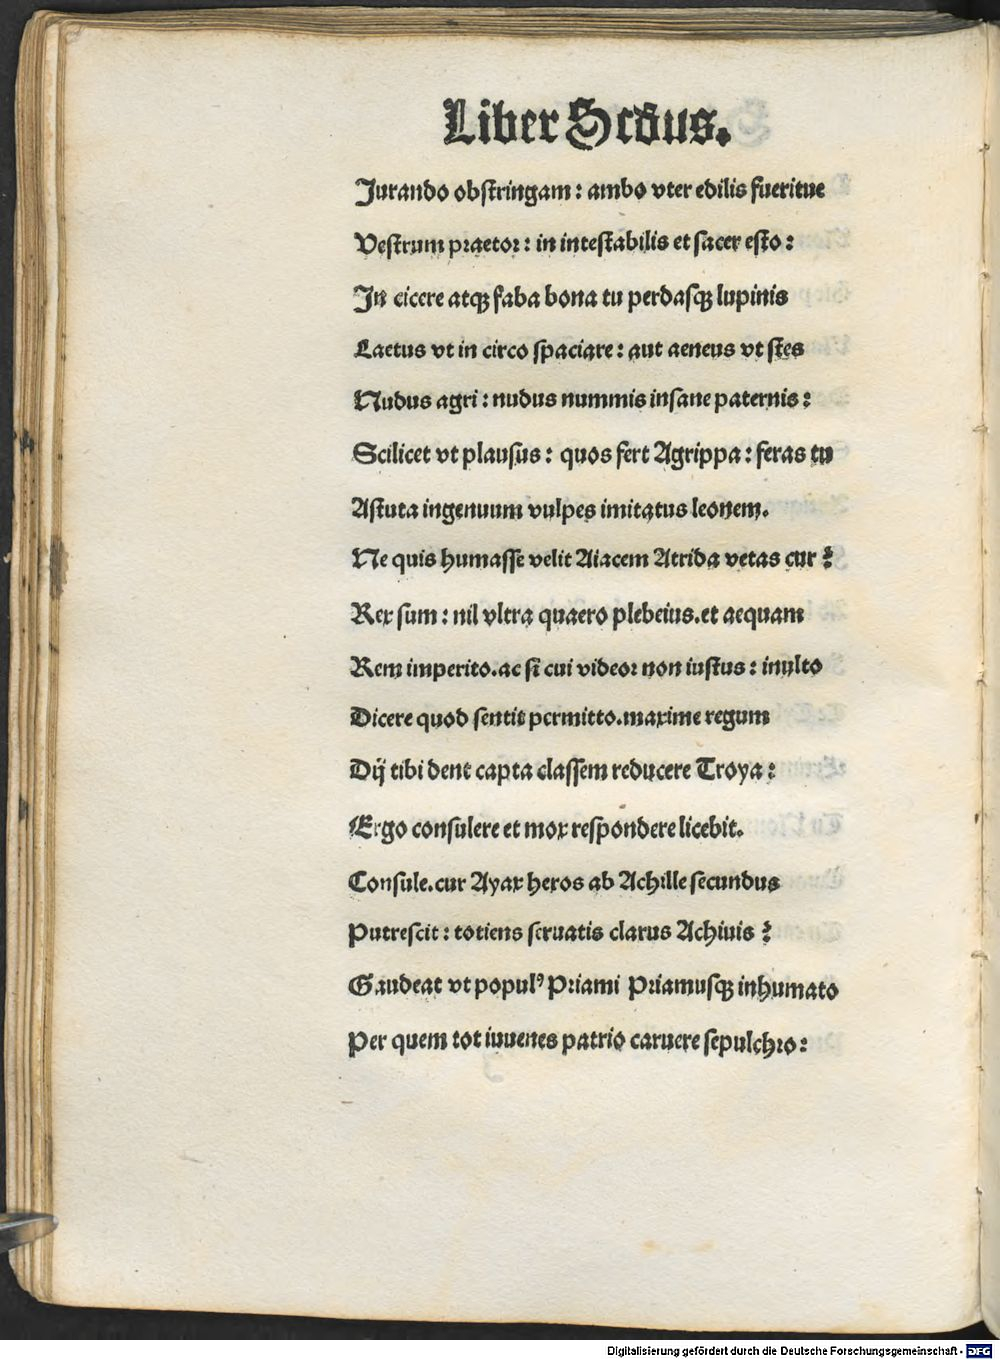 Liber Scd̄us.
Jurando obstringam: ambo vter edilis fueritue
Vestrum praetor: in intestabilis et sacer esto:
In cicere atqꝫ faba bona tu perdasqꝫ lupinis
Laetus vt in circo spaciare: aut aeneus vt stes
Nudus agri: nudus nummis insane paternis:
Scilicet vt plausus: quos fert Agrippa: feras tu
Astuta ingenuum vulpes imitatus leonem.
Ne quis humasse velit Aiacem Atrida vetas cur?
Rex sum: nil vltra quaero plebeius.et aequam
Rem imperito.ac si cui videor non iustus: inulto
Dicere quod sentit permitto.maxime regum
Dij tibi dent capta classem reducere Troya:
Ergo consulere et mox respondere licebit.
Consule.cur Ayax heros ab Achille secundus
Putrescit: totiens seruatis clarus Achiuis?
Gaudeat vt populꝰ Priami Priamusqꝫ inhumato
Per quem tot iuuenes patrio caruere sepulchro:
Digitalisierung gefördert durch die Deutsche Forschungsgemeinschaft - DFG